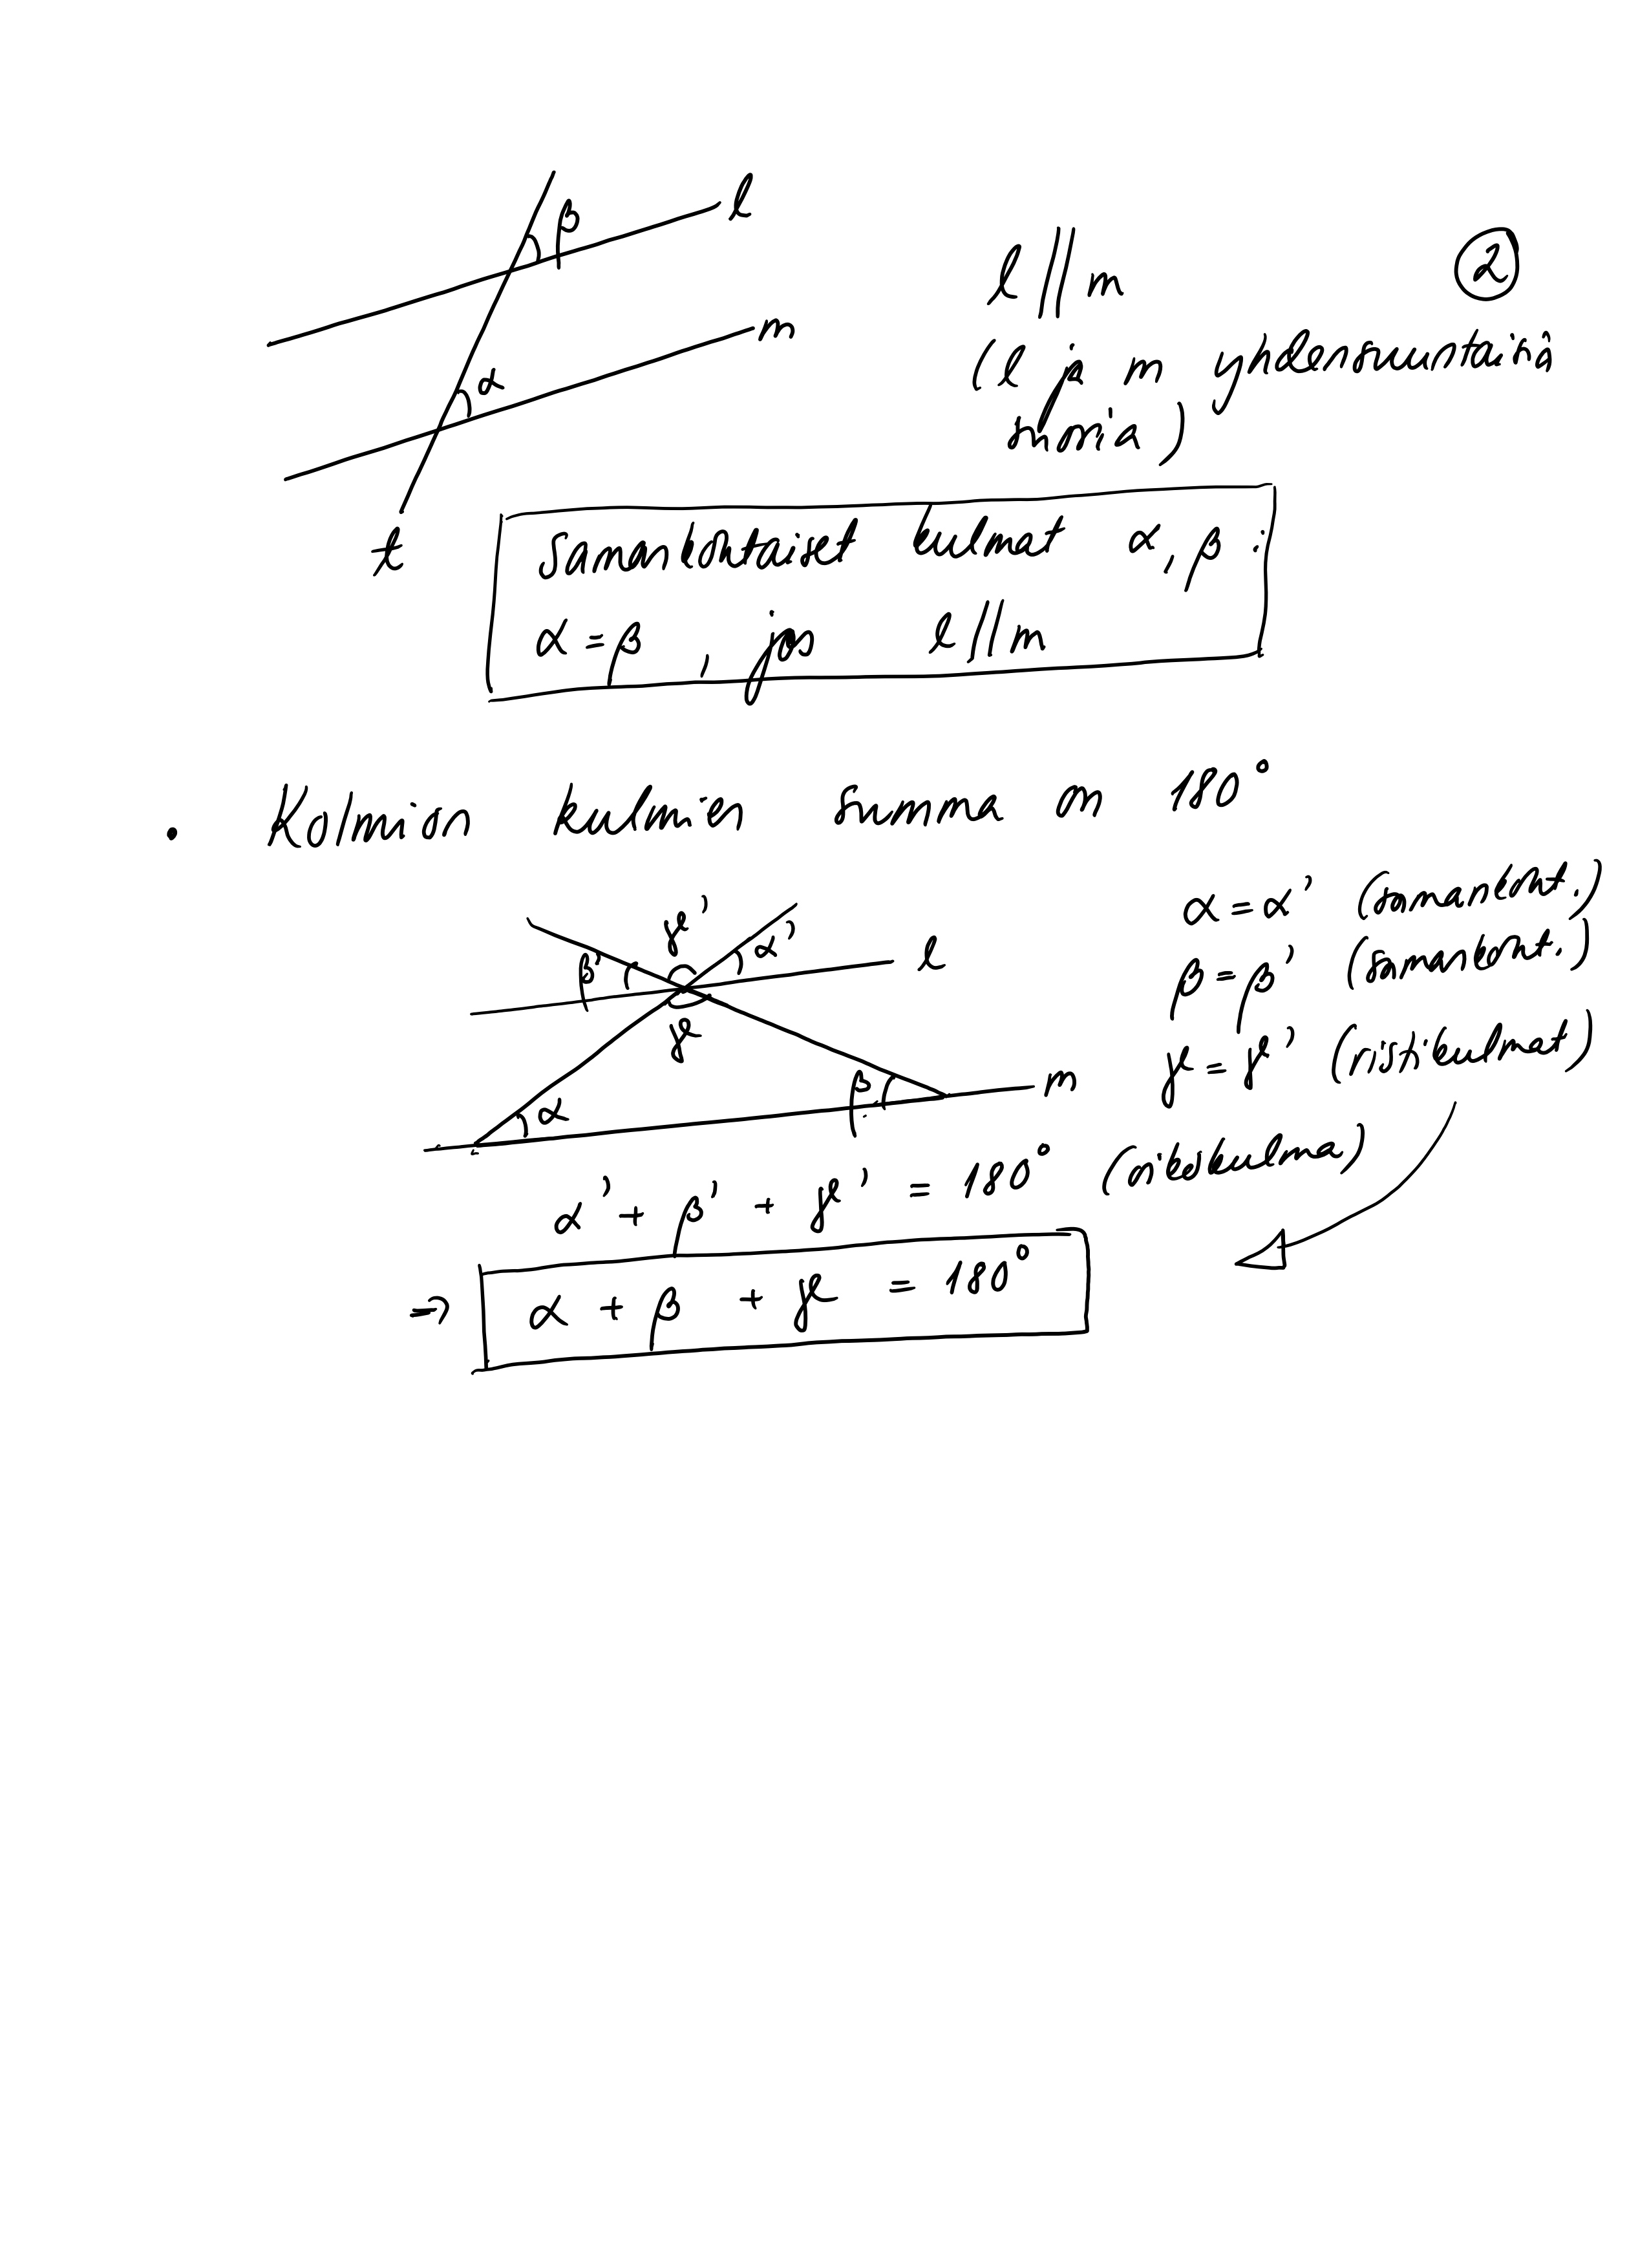 β
l
m
α
t
l ∥ m
②
(l ja m yhdensuuntaisia
suoria)
Samankohtaiset kulmat α, β :
α = β , jos l ∥ m
• Kolmion kulmien summa on 180°
γ'
β'
α'
l
γ
α
β
m
α = α' (samankoht.)
β = β' (samankoht.)
γ = γ' (ristikulmat)
α' + β' + γ' = 180° (oikokulma)
⇒ α + β + γ = 180°